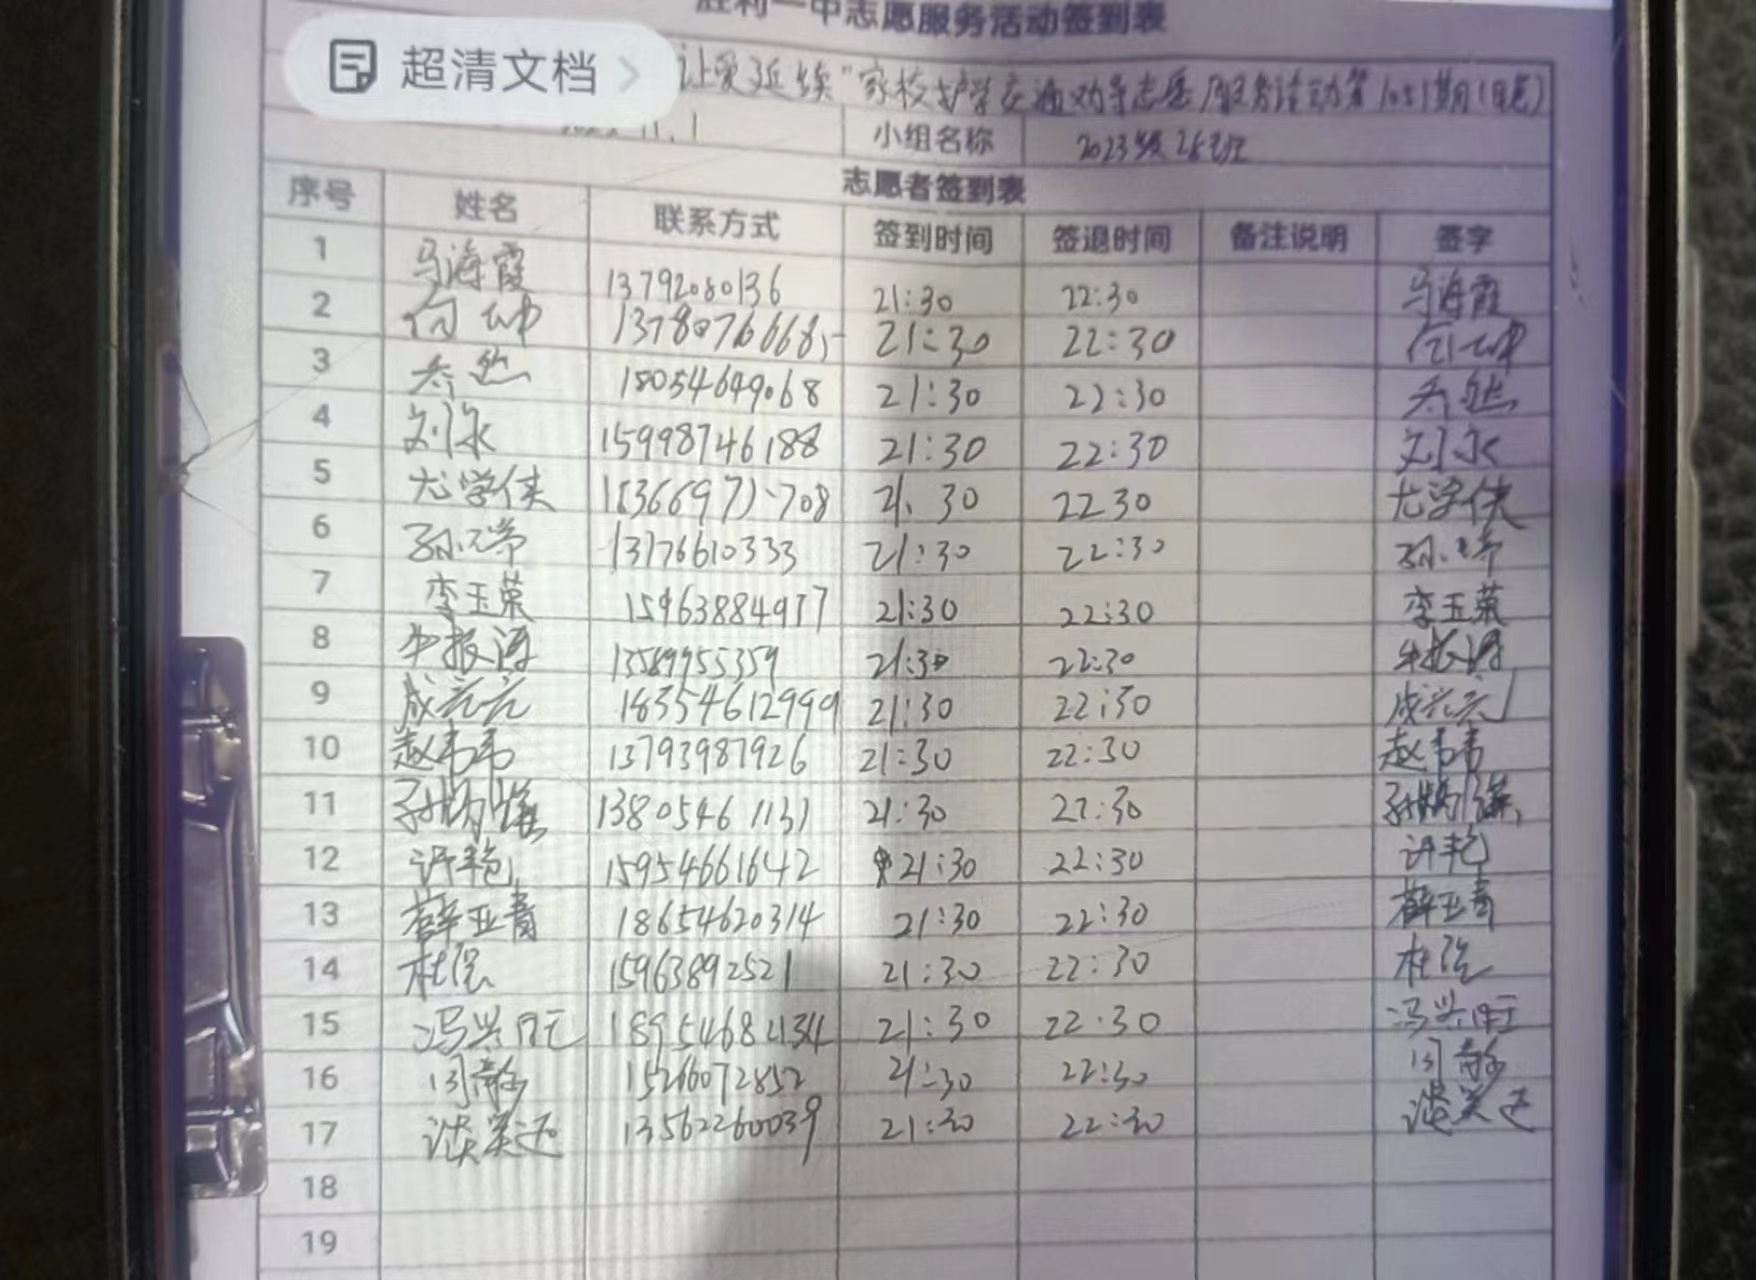 胜利一中志愿服务活动签到表
超清文档 >
让爱延续"家校护学交通劝导志愿服务活动第1051期(晚)
11.1 小组名称 2023级26班
志愿者签到表
序号 姓名 联系方式 签到时间 签退时间 备注说明 签字
1 马海霞 13792080136 21:30 22:30 马海霞
2 何坤 13780766685 21:30 22:30 何坤
3 18054649068 21:30 22:30
4 刘永 15998746188 21:30 22:30 刘永
5 尤学侠 708 21:30 22:30 尤学侠
6 13176610333 21:30 22:30
7 李玉荣 15963884977 21:30 22:30 李玉荣
8 牛振海 13589955359 21:30 22:30 牛振海
9 成云云 18354612999 21:30 22:30 成云云
10 赵韦韦 13793987926 21:30 22:30 赵韦韦
11 13805461131 21:30 22:30
12 许艳 15954661642 21:30 22:30 许艳
13 薛亚青 18654620314 21:30 22:30 薛亚青
14 杜滨 15963892521 21:30 22:30 杜滨
15 冯兴旺 18954682134 21:30 22:30 冯兴旺
16 闫静 15266072852 21:30 22:30 闫静
17 谈笑迅 13562260039 21:30 22:30 谈笑迅
18
19